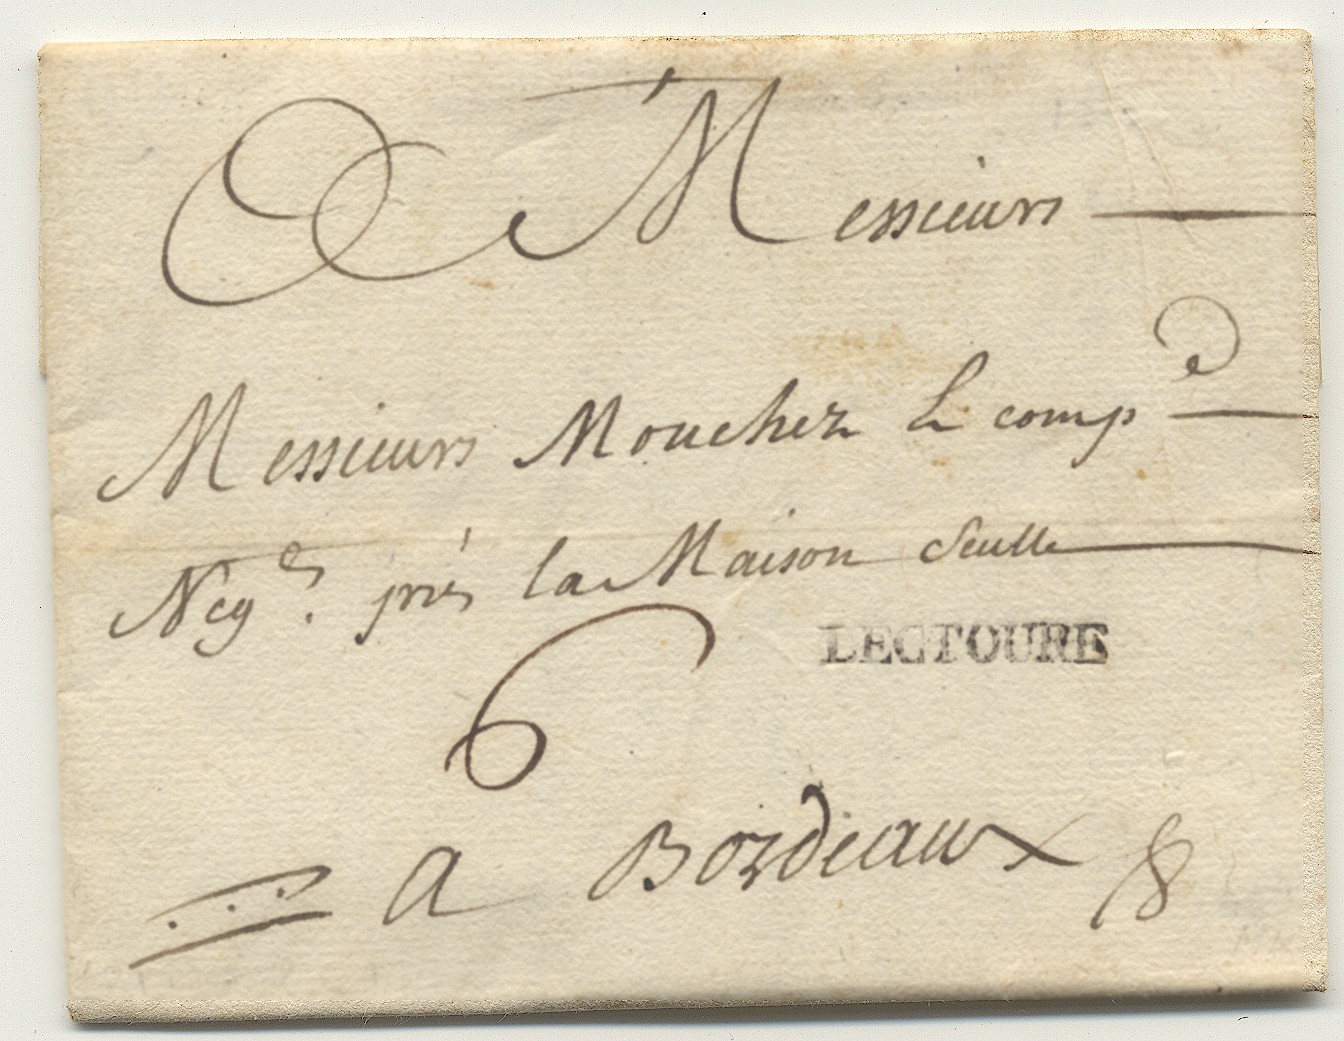 Messieurs
Messieurs Mouchez & comp e
Neg ts. près la Maison Seulle
LECTOURE
6
a Bordeaux